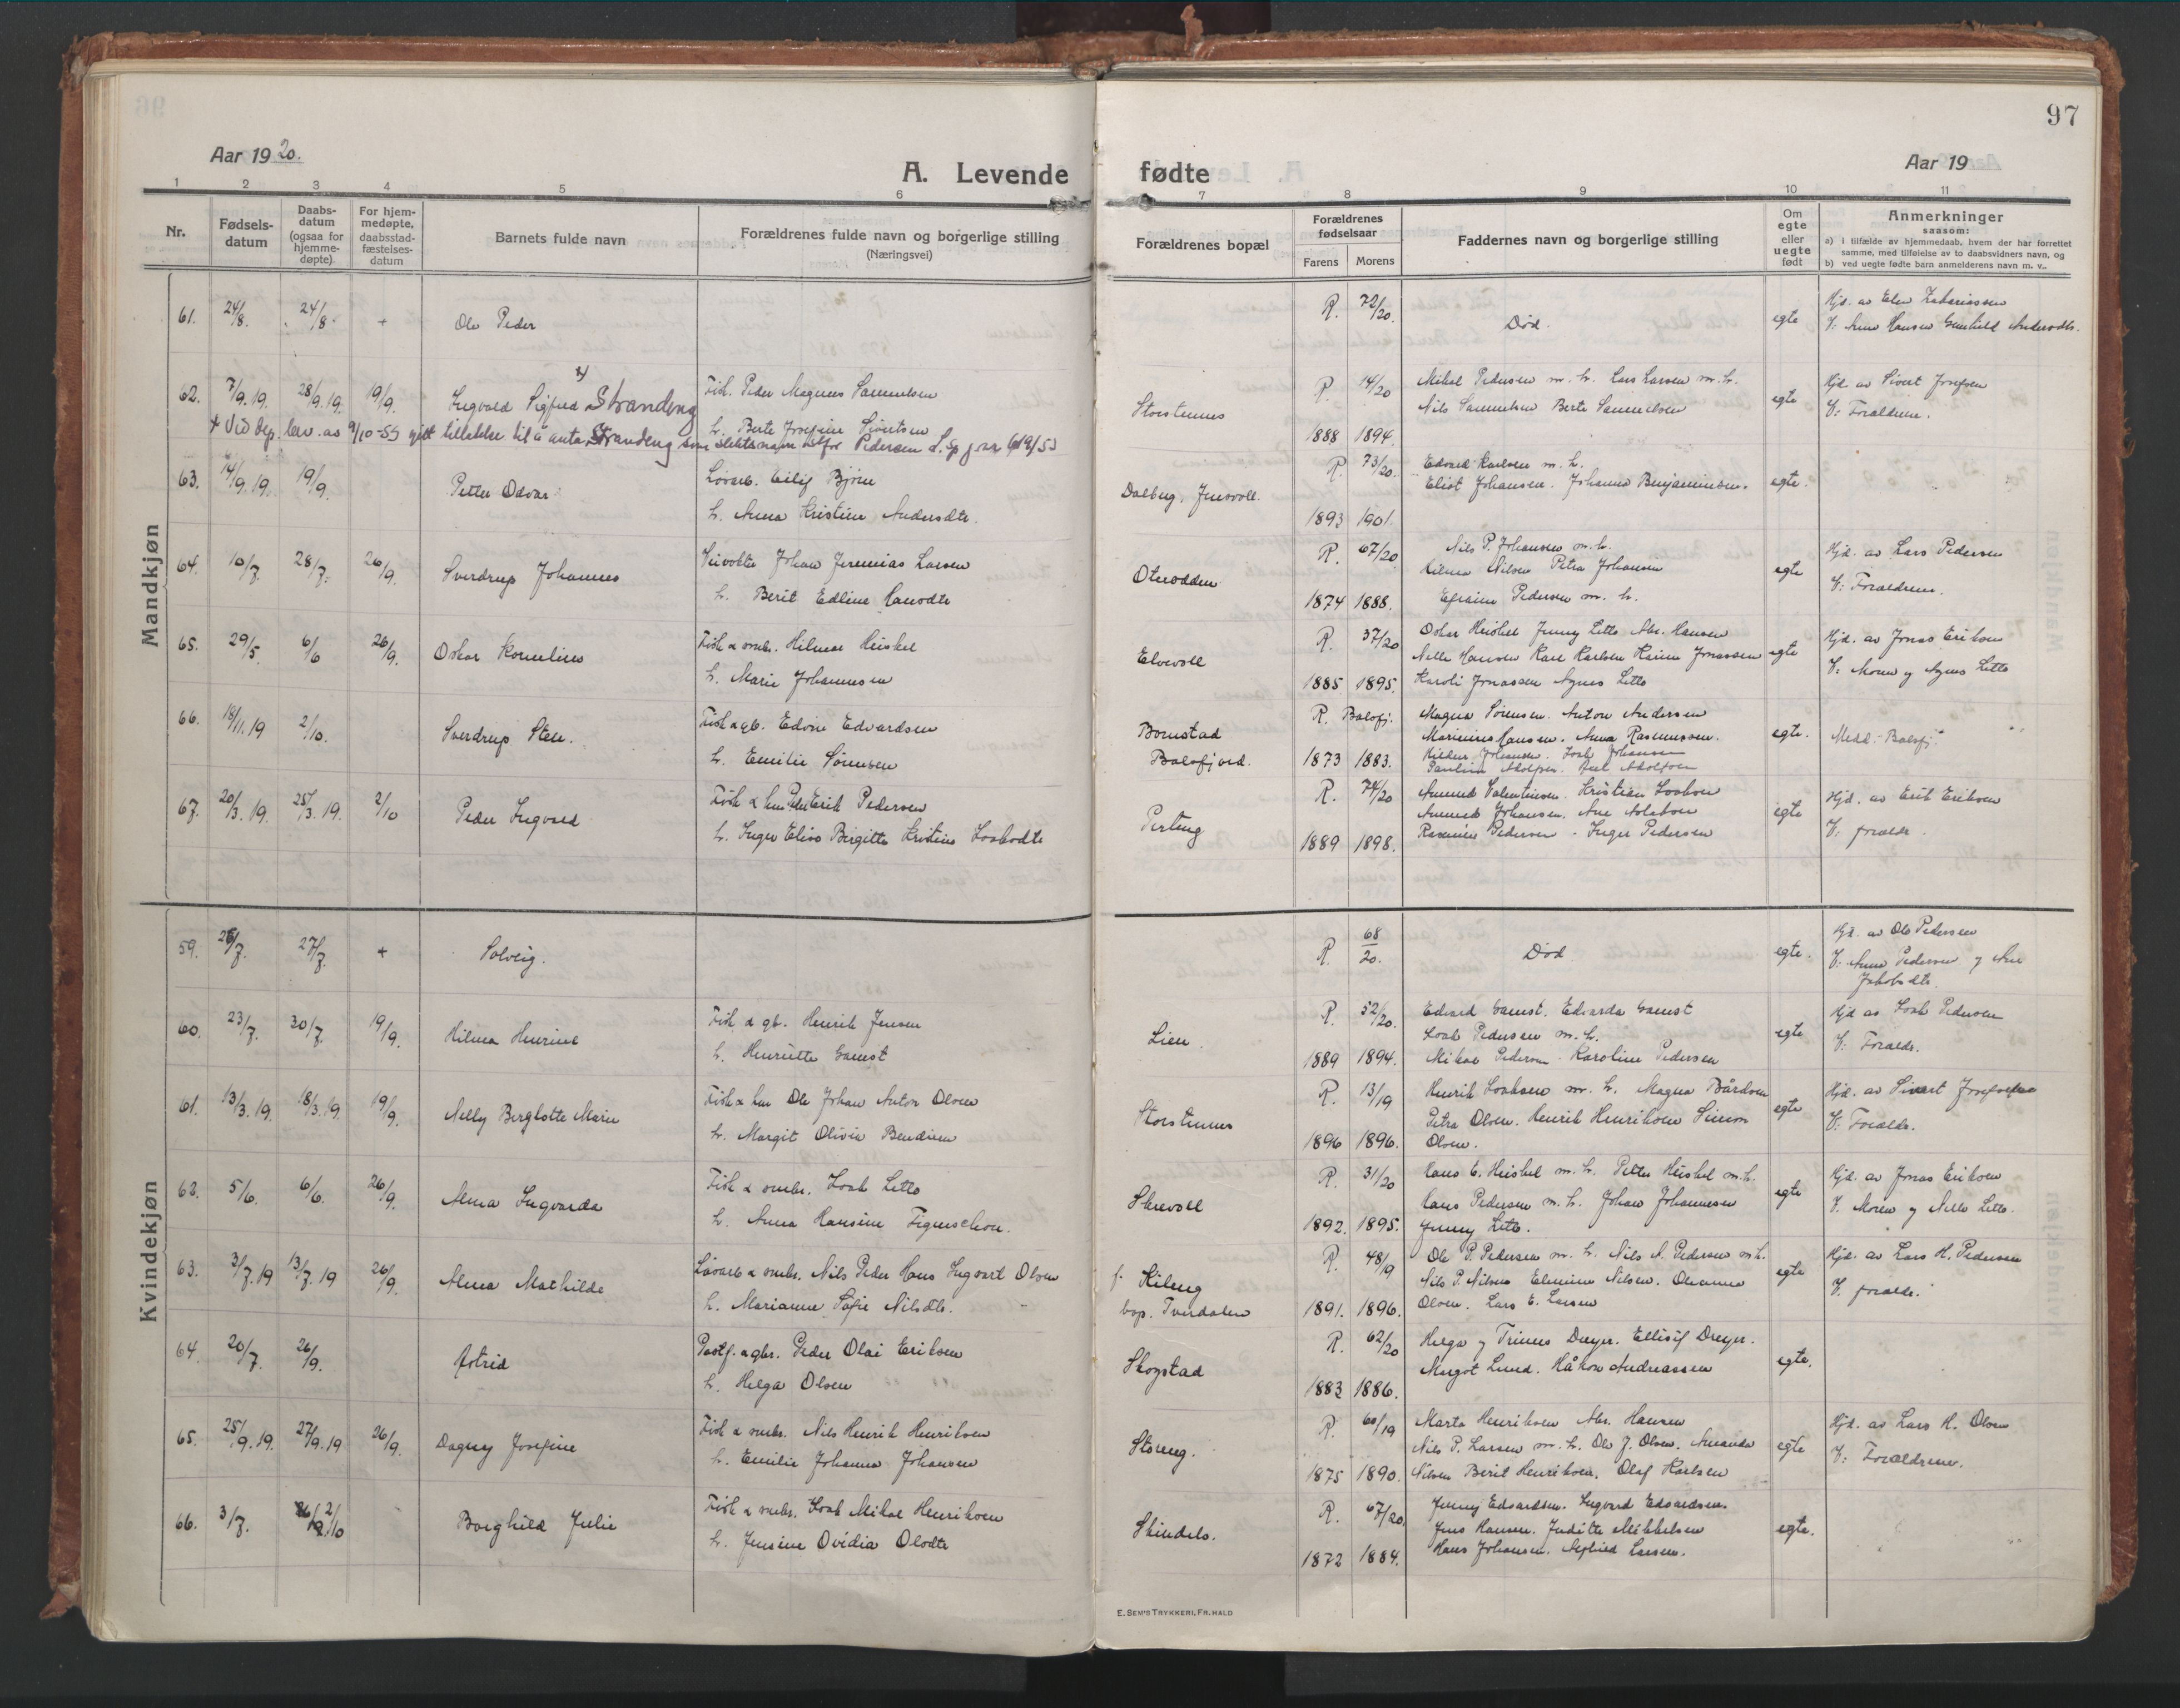 97
Aar 1920.
A. Levende fødte
Aar 19
1 2 3 4 5 6 7 8 9 10 11
Nr.
Fødsels-
datum
Daabs-
datum
(ogsaa for
hjemme-
døpte)
For hjem-
medøpte,
daabsstad-
fæstelses-
datum
Barnets fulde navn
Forældrenes fulde navn og borgerlige stilling
(Næringsvei)
Forældrenes bopæl
Forældrenes
fødselsaar
Farens Morens
Faddernes navn og borgerlige stilling
Om
egte
eller
uegte
født
Anmerkninger
saasom:
a) i tilfælde av hjemmedaab, hvem der har forrettet
samme, med tilføielse av to daabsvidners navn, og
b) ved uegte fødte barn anmelderens navn m. v..
Mandkjøn
61. 24/8. 24/8. + Ole Peder R. 72/20. Død. egte Hjd. av Zakariassen
V: Hansen Andersdtr.
62. 7/9.19. 28/9.19. 19/9. Ingvald Sigfred x) Strandeng Fisk. Peder Magnus Samuelsen Storstennes R. 14/20 Mikal Pedersen m. h. Lars Larsen m. h. egte Hjd. av Sivert Josefsen
h. Berte Josefine Sivertsen 1888 1894. Nils Samuelsen Berte Samuelsen V: Forældrene.
x Vid dep. skriv. av 9/10-53 gitt tillatelse til å anta Strandeng som slektsnavn istfor Pedersen
63. 14/9.19. 19/9. Petter Odvar Løsarb. Eilif Bjørn Dalberg, R. 73/20. Edvard Karlsen m. h. egte.
h. Anna Kristine Andersdtr. 1893 1901. Eliot Johansen. Johanna Benjaminsen.
64. 10/7. 28/7. 26/9. Sverdrup Johannes Johan Jeremias Larsen Oteródden R. 67/20 Nils P. Johansen m. h. egte Hjd. av Lars Pedersen
h. Berit Edline Hansdtr 1874 1888. Nilsen Petra Johansen V: Forældrene.
Efraim Pedersen m. h.
65. 29/5. 6/6 26/9. Oskar Kornelius Fisk & smbr. Hilmar Heiskel Elvevoll R. 37/20 Oskar Heiskel Jenny Letto Abr. Hansen egte Hjd. av Jonas Eriksen
h. Marie Johannesen 1885 1895. Nelle Hansen Kare Karlsen Jonassen V: Moren og Agnes Letto
Karoli Jonassen Agnes Letto
66. 18/11.19 2/10. Sverdrup Sten. Fisk & gb. Edvin Edvardsen Bomstad R. Balsfj. Magna Sørensen. Anton Andersen egte. Medl. Balsfj.
h. Emilie Sørensen Balsfjord. 1873 1883. Marinius Hansen. Anna Rasmussen.
Johansen. Isak Johansen
Pauline Adolfsen. Adolfsen
67. 20/3.19. 25/3.19. 2/10 Peder Ingvald Fisk & Erik Pedersen Perteng R. 74/20 Valentinsen. Kristian Isaksen egte Hjd. av Erik Eriksen
h. Inger Elisa Birgitte Kristine Isaksdtr 1889 1898. Johansen. V: forældr.
Rasmus Pedersen - Inger Pedersen
Kvindekjøn
59. 26/7. 27/7. + Solveig. R. 68/20. Død. egte. Hjd. av Ole Pedersen
V. Anna Pedersen og Ane
Jakobsdtr.
60. 23/7. 30/7. 19/9. Hilma Henrine Fisk. & gb. Henrik Jensen Lien. R. 52/20. Edvard Gamst. Edvarda Gamst egte Hjd av Isak Pedersen
h. Henriette Gamst 1889 1894. Isak Pedersen m. h. V: Forældr.
Mikal Pedersen - Karoline Pedersen
61. 13/3.19. 18/3.19 19/9. Nelly Berglotte Marie Fisk & Ole Johan Anton Olsen Storstennes R. 13/19 Henrik Isaksen m. h. Magna Bårdsen egte Hjd. av Sivert Josefsen
h. Margit Olivia Bendixen 1896 1896. Petra Olsen. Henrik Henriksen Simon V: Forældr.
Olsen.
62. 5/6. 6/6. 26/9. Alma Ingvarda Fisk & smbr. Isak Letto Skrevoll R. 31/20 Hans E. Heiskel m. h. Petter Heiskel m.h. egte Hjd. av Jonas Eriksen
h. Anna Hansine Figenschou. 1892. 1895. Hans Pedersen m. h. Johan Johannesen V. Moren og Nelle Letto.
Jenny Letto.
63. 3/7.19 13/7.19 26/9. Alma Mathilde Løsarb & smbr. Nils Peder Hans Ingvart Olsen f. Kileng R. 48/19 Ole P. Pedersen m. h. Nils A. Pedersen m.h. egte Hjd. av Lars H. Pedersen
h. Marianne Sofie Nilsdtr. bop. Tverdalen 1891. 1896. Nils P. Nilsen Elmine Nilsen. V. forældr.
Olsen. Lars E. Larsen
64. 20/7. 26/9. Astrid Postf. & gbr. Peder Olai Eriksen Skogstad R. 62/20 Helga og Trines Dreyer. Ellisif Dreyer. egte.
h. Helga Olsen 1883 1886. Margot Lund. Håkon Andreassen
65. 25/9.19. 27/9.19 26/9. Dagny Josefine Fisk & smbr. Nils Henrik Henriksen Storeng. R. 60/19 Marta Henriksen Abr. Hansen egte Hjd. av Lars H. Olsen
h. Emilie Johanna Johansen 1875 1890. Nils P. Larsen m. h. Ole J. Olsen. Amanda V: Forældrene.
Nilsen Berit Henriksen. Olaf Karlsen
66. 3/7. 2/10 Borghild Julie Fisk & smbr. Isak Mikal Henriksen Skindelv. R. 67/20. Jenny Edvardsen. Ingvard Edvardsen. egte.
h. Jensine Ovidia Olsdtr 1872 1884. Jens Hansen. Juditte Mikkelsen
Hans Johansen. Larsen.
E. SEM'S TRYKKERI, FR.HALD